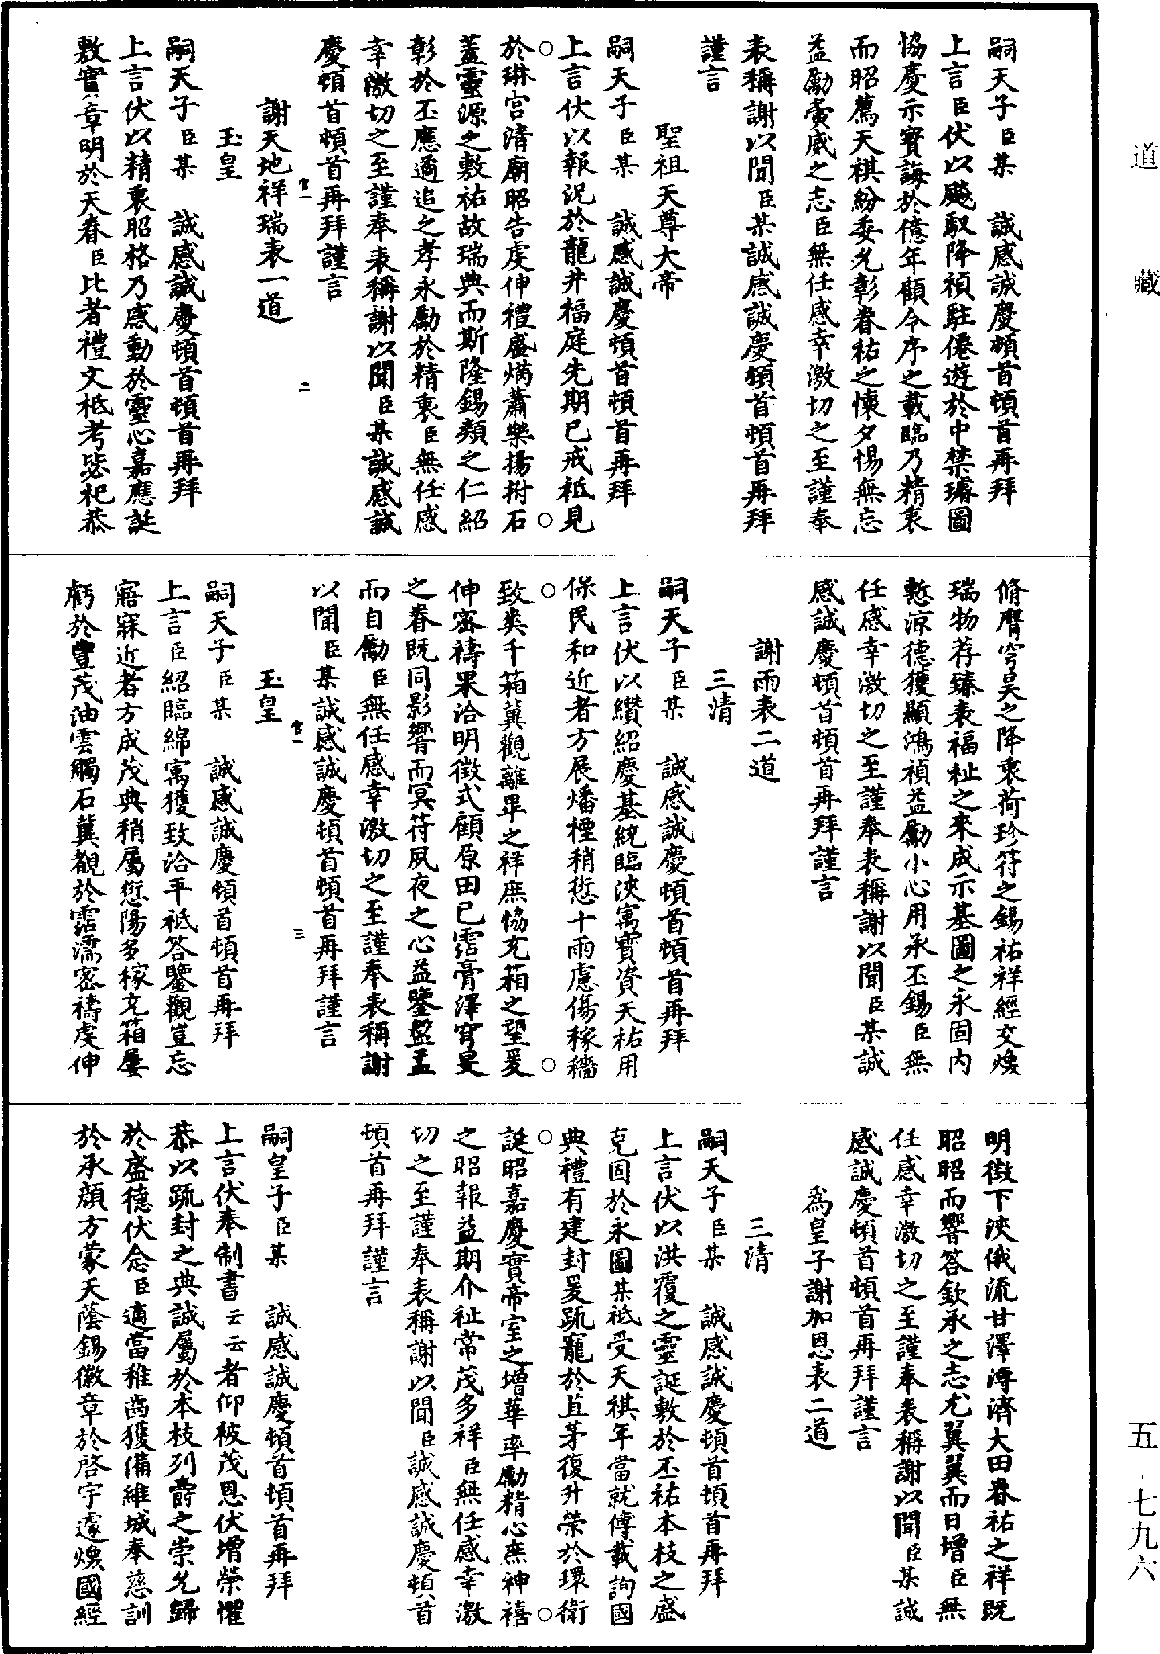 道藏
五-七九六
嗣天子臣某　誠感誠慶頓首頓首再拜
上言臣伏以飈馭降禎駐僊遊於中禁璿圖
協慶示寶誨於億年顧令序之載臨乃精衷
而昭薦天祺紛委允彰眷祐之懷夕惕無忘
益勵寅威之志臣無任感幸激切之至謹奉
表稱謝以聞臣某誠感誠慶頓首頓首再拜
謹言
聖祖天尊大帝
嗣天子臣某　誠感誠慶頓首頓首再拜
上言伏以報況於龍井福庭先期已戒祗見
於琳宮清廟昭告虔伸禮盛焫蕭樂揚拊石
蓋靈源之敷祐故瑞典而斯隆錫類之仁紹
彰於丕應遹追之孝永勵於精衷臣無任感
幸激切之至謹奉表稱謝以聞臣某誠感誠
慶頓首頓首再拜謹言
謝天地祥瑞表一道
玉皇
嗣天子臣某　誠感誠慶頓首頓首再拜
上言伏以精衷昭格乃感動於靈心嘉應誕
敷實章明於天眷臣比者禮文祗考毖祀恭
脩膺穹昊之降衷荷珍符之錫祐祥經交煥
瑞物荐臻表福祉之來成示基圖之永固內
慙涼德獲顯鴻禎益勵小心用承丕錫臣無
任感幸激切之至謹奉表稱謝以聞臣某誠
感誠慶頓首頓首再拜謹言
謝雨表二道
三清
嗣天子臣某　誠感誠慶頓首頓首再拜
上言伏以纘紹慶基統臨浹寓寶資天祐用
保民和近者方展燔禋稍愆十雨慮傷稼穡
致奏千箱冀觀離畢之祥庶協充箱之望爰
伸密禱果洽明徵式顧原田已霑膏澤穹旻
之眷既同影響而冥符夙夜之心益鑒盤盂
而自勵臣無任感幸激切之至謹奉表稱謝
以聞臣某誠感誠慶頓首頓首再拜謹言
玉皇
嗣天子臣某　誠感誠慶頓首頓首再拜
上言臣紹臨綿寓獲致洽平祗荅鑒觀豈忘
寤寐近者方成茂典稍屬愆陽多稼充箱屢
虧於豐茂油雲觸石冀覩於霑濡密禱虔伸
明徵下浹俄流甘澤溥濟大田眷祐之祥既
昭昭而響荅欽承之志尤翼翼而日增臣無
任感幸激切之至謹奉表稱謝以聞臣某誠
感誠慶頓首頓首再拜謹言
為皇子謝加恩表二道
三清
嗣天子臣某　誠感誠慶頓首頓首再拜
上言伏以洪覆之靈誕敷於丕祐本枝之盛
克固於永圖某祗受天祺年當就傅載詢國
典禮有建封爰䟽寵於苴茅復升榮於環衛
誕昭嘉慶實帝室之增華率勵精心庶神禧
之昭報益期介祉常茂多祥臣無任感幸激
切之至謹奉表稱謝以聞臣誠感誠慶頓首
頓首再拜謹言
嗣皇子臣某　誠感誠慶頓首頓首再拜
上言伏奉制書云云者仰被茂恩伏增榮懼
恭以疏封之典誠屬於本枝列爵之崇允歸
於盛德伏念臣適當稚齒獲備維城奉慈訓
於承顏方蒙天蔭錫徽章於啓宇遽煥國經